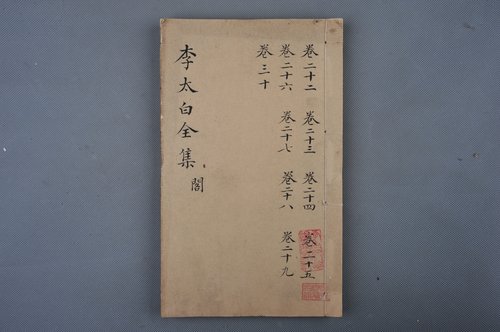 卷二十二 卷二十三 卷二十四 卷二十五
卷二十六 卷二十七 卷二十八 卷二十九
卷三十
李太白全集
閣